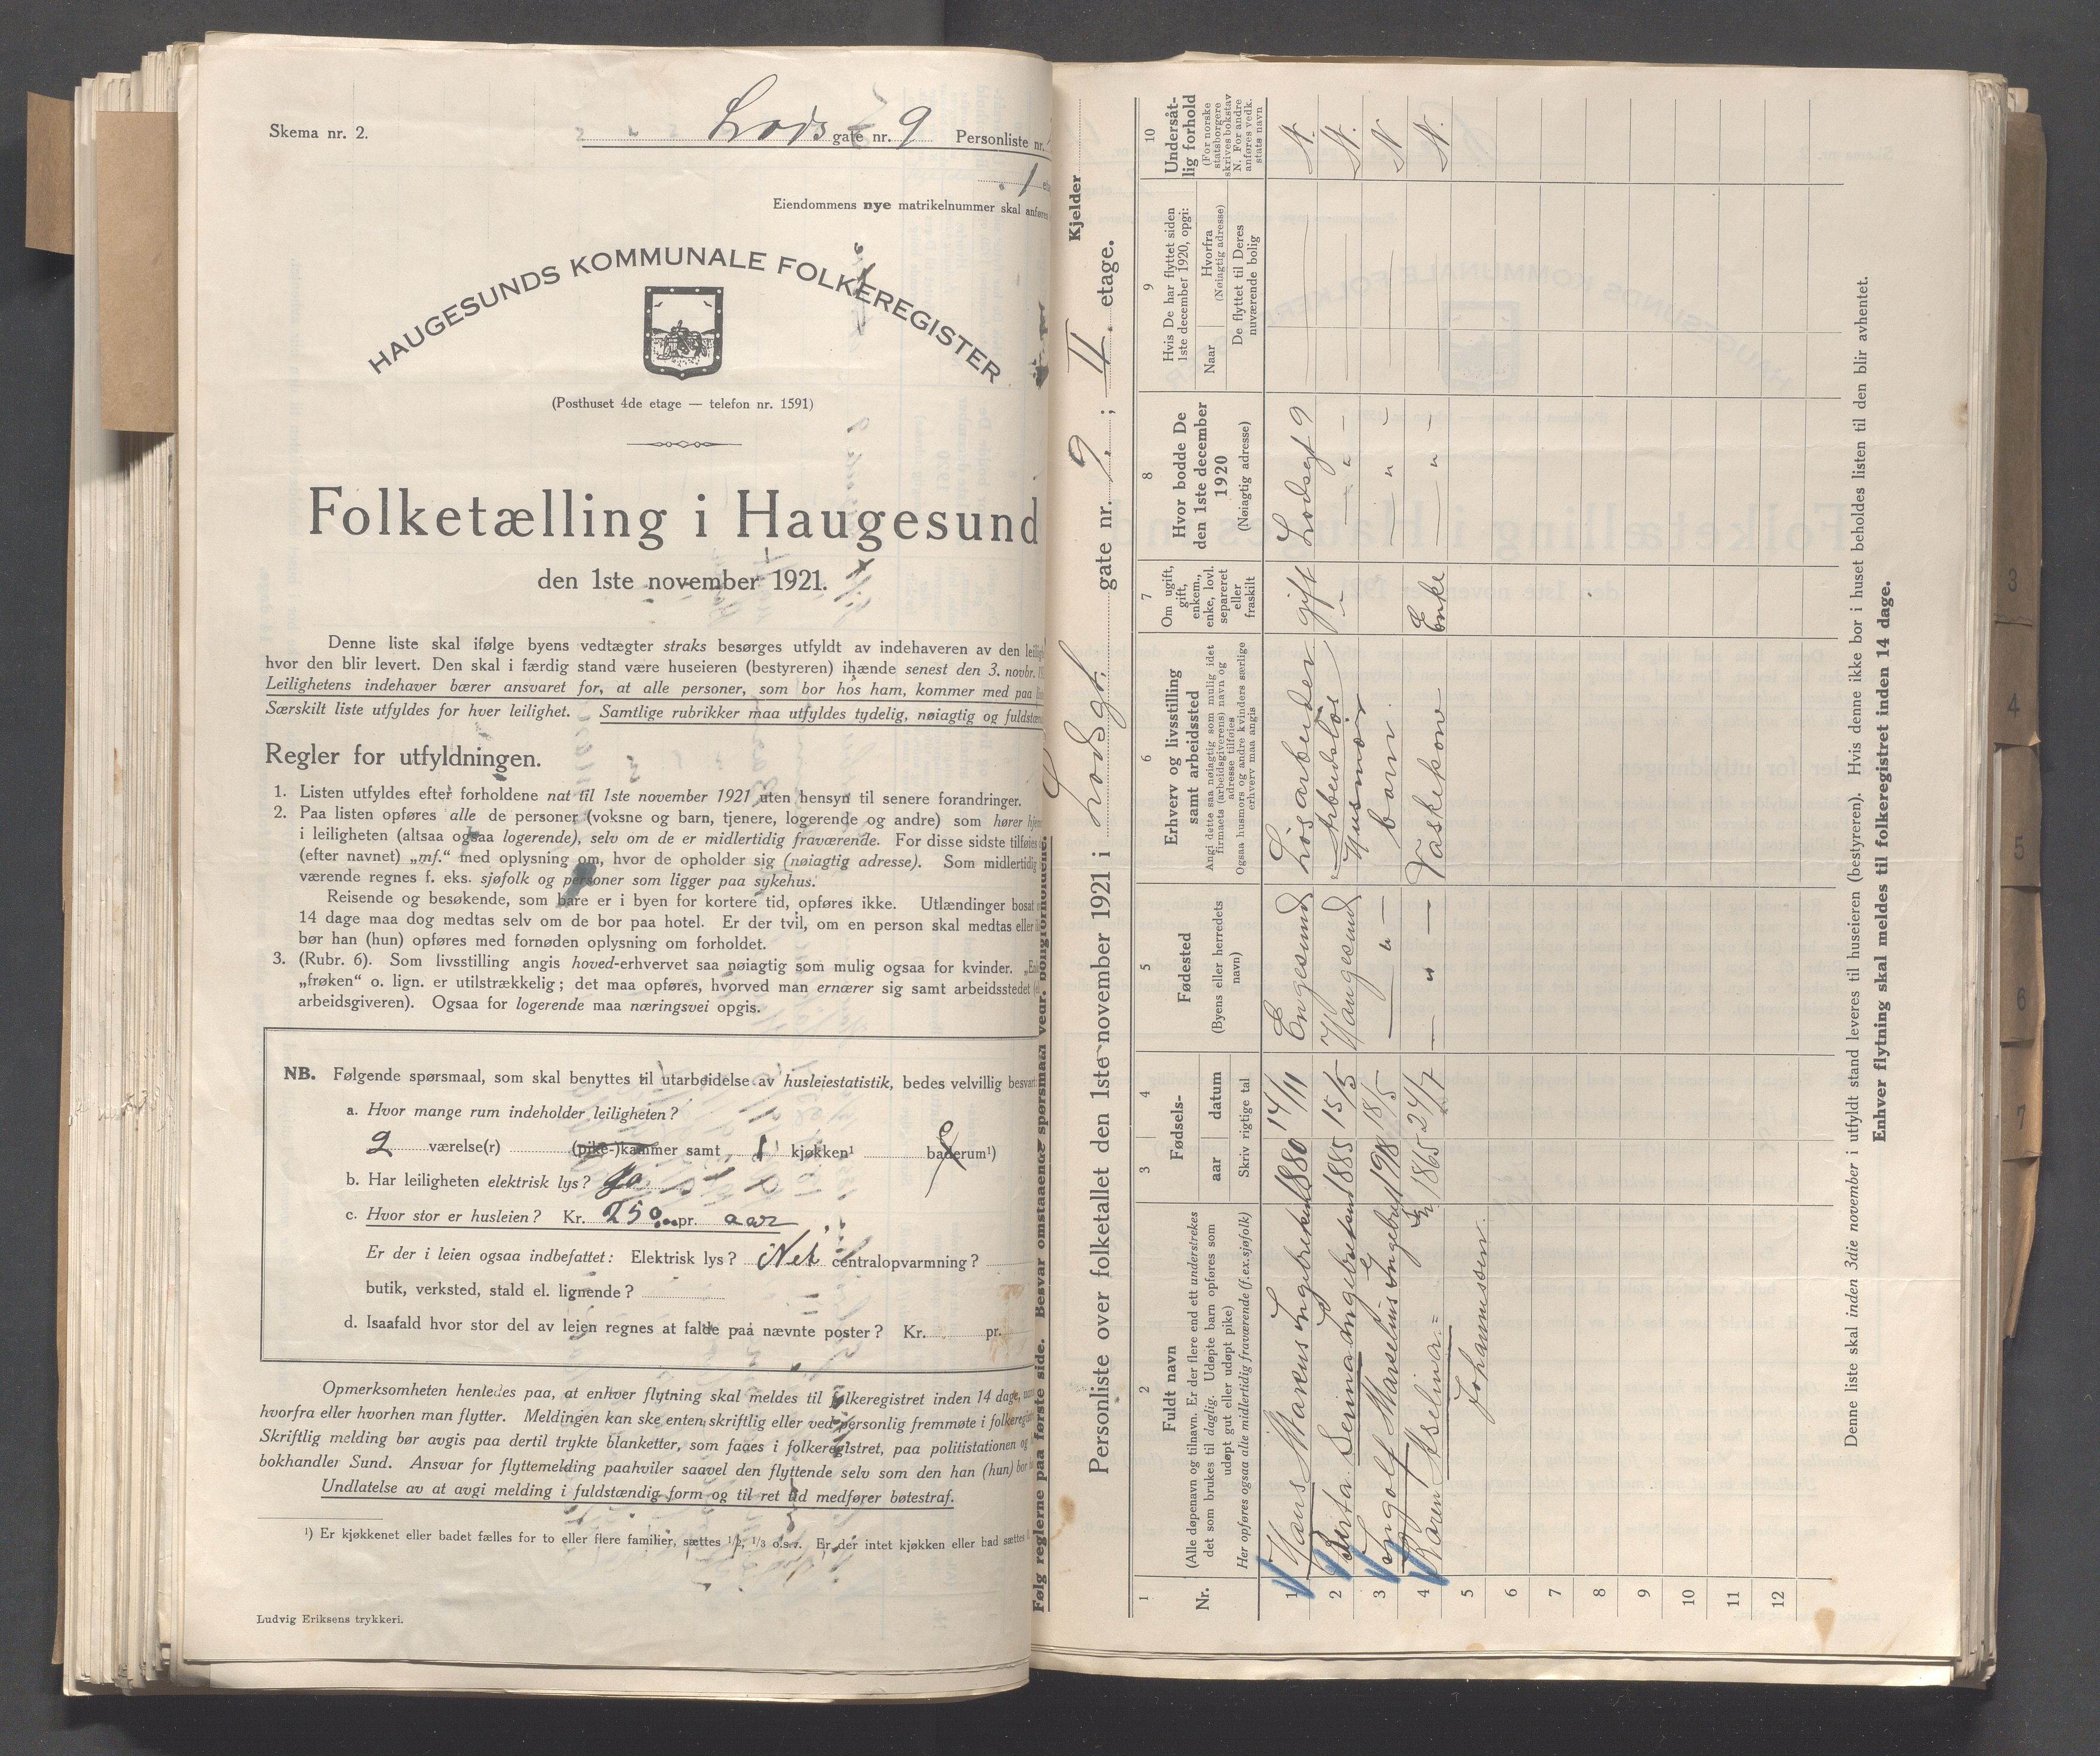 Skema nr. 2.
Lods gate nr. 9 Personliste nr.
1
Eiendommens nye matrikelnummer skal anføres
HAUGESUNDS KOMMUNALE FOLKEREGISTER
(Posthuset 4de etage — telefon nr. 1591)
Folketælling i Haugesund
den 1ste november 1921.
Denne liste skal ifølge byens vedtægter straks besørges utfyldt av indehaveren av den
hvor den blir levert. Den skal i færdig stand være huseieren (bestyreren) ihænde senest den 3. novbr.
Leilighetens indehaver bærer ansvaret for, at alle personer, som bor hos ham, kommer med paa
Særskilt liste utfyldes for hver leilighet. Samtlige rubrikker maa utfyldes tydelig, nøiagtig og
Regler for utfyldningen.
1. Listen utfyldes efter forholdene nat til 1ste november 1921 uten hensyn til senere forandringer.
2. Paa listen opføres alle de personer (voksne og barn, tjenere, logerende og andre) som hører
i leiligheten (altsaa ogsaa logerende), selv om de er midlertidig fraværende. For disse sidste tilføies
(efter navnet) „mf.“ med oplysning om, hvor de opholder sig (nøiagtig adresse). Som midlertidig
værende regnes f. eks. sjøfolk og personer som ligger paa sykehus.
Reisende og besøkende, som bare er i byen for kortere tid, opføres ikke. Utlændinger bosat
14 dage maa dog medtas selv om de bor paa hotel. Er der tvil, om en person skal medtas eller
bør han (hun) opføres med fornøden oplysning om forholdet.
3. (Rubr. 6). Som livsstilling angis hoved-erhvervet saa nøiagtig som mulig ogsaa for kvinder.
„frøken“ o. lign. er utilstrækkelig; det maa opføres, hvorved man ernærer sig samt arbeidsstedet
arbeidsgiveren). Ogsaa for logerende maa næringsvei opgis.
NB. Følgende spørsmaal, som skal benyttes til utarbeidelse av husleiestatistik, bedes velvillig
a. Hvor mange rum indeholder leiligheten?
2 værelse(r) (pike-)kammer samt 1 kjøkken¹ baderum¹)
b. Har leiligheten elektrisk lys? Ja
c. Hvor stor er husleien? Kr. 250 pr. aar
Er der i leien ogsaa indbefattet: Elektrisk lys? Nei centralopvarmning?
butik, verksted, stald el. lignende?
d. Isaafald hvor stor del av leien regnes at falde paa nævnte poster? Kr. pr.
Opmerksomheten henledes paa, at enhver flytning skal meldes til folkeregistret inden 14 dage,
hvorfra eller hvorhen man flytter. Meldingen kan ske enten skriftlig eller ved personlig fremmøte i
Skriftlig melding bør avgis paa dertil trykte blanketter, som faaes i folkeregistret, paa politistationen og
bokhandler Sund. Ansvar for flyttemelding paahviler saavel den flyttende selv som den han (hun) bor
Undlatelse av at avgi melding i fuldstændig form og til ret tid medfører bøtestraf.
¹) Er kjøkkenet eller badet fælles for to eller flere familier, sættes 1/2, 1/3 o.s.v. Er der intet kjøkken eller bad sættes
Ludvig Eriksens trykkeri.
Følg reglerne paa første side. Besvar omstaaende spørsmaal vedr. boligforholdene.
Kjelder
Personliste over folketallet den 1ste november 1921 i Lodsgt. gate nr. 9; II etage.
1 2 3 4 5 6 7 8 9 10
Nr.
Fuldt navn
(Alle døpenavn og tilnavn. Er der flere end ett understrekes
det som brukes til daglig. Udøpte barn opføres som
udøpt gut eller udøpt pike)
Her opføres ogsaa alle midlertidig fraværende (f.ex.sjøfolk)
Fødsels-
aar datum
Skriv rigtige tal
Fødested
(Byens eller herredets
navn)
Erhverv og livsstilling
samt arbeidssted
Angi dette saa nøiagtig som mulig idet
firmaets (arbeidsgiverens) navn og
adresse tilføies
Ogsaa husmors og andre kvinders særlige
erhverv maa angis
Om ugift,
gift,
enkem.,
enke, lovl.
separeret
eller
fraskilt
Hvor bodde De
den 1ste december
1920
(Nøiagtig adresse)
Hvis De har flyttet siden
1ste december 1920, opgi:
Naar
Hvorfra
(Nøiagtig adresse)
De flyttet til Deres
nuværende bolig
Undersåt-
lig forhold
(For norske
statsborgere
skrives bokstav
N. For andre
anføres vedk.
stats navn
1 Hans Marcus Ingebretsen 1880 14/11 Engesund Løsarbeider gift Lodsgt 9 N.
Arbeidsløs
2 Berta Serina Ingebretsen 1885 15/5 Haugesund Husmor " — " — N.
3 Ingolf Marselius Ingebret 1918 18/5 — " — barn — " — N
4 Karen Aselina = 1865 24/7 — " — Vaskekone Enke — " — N.
Johannssen.
5
6
7
8
9
10
11
12
Denne liste skal inden 3die november i utfyldt stand leveres til huseieren (bestyreren). Hvis denne ikke bor i huset beholdes listen til den blir avhentet.
Enhver flytning skal meldes til folkeregistret inden 14 dage.
3
4
5
6
7